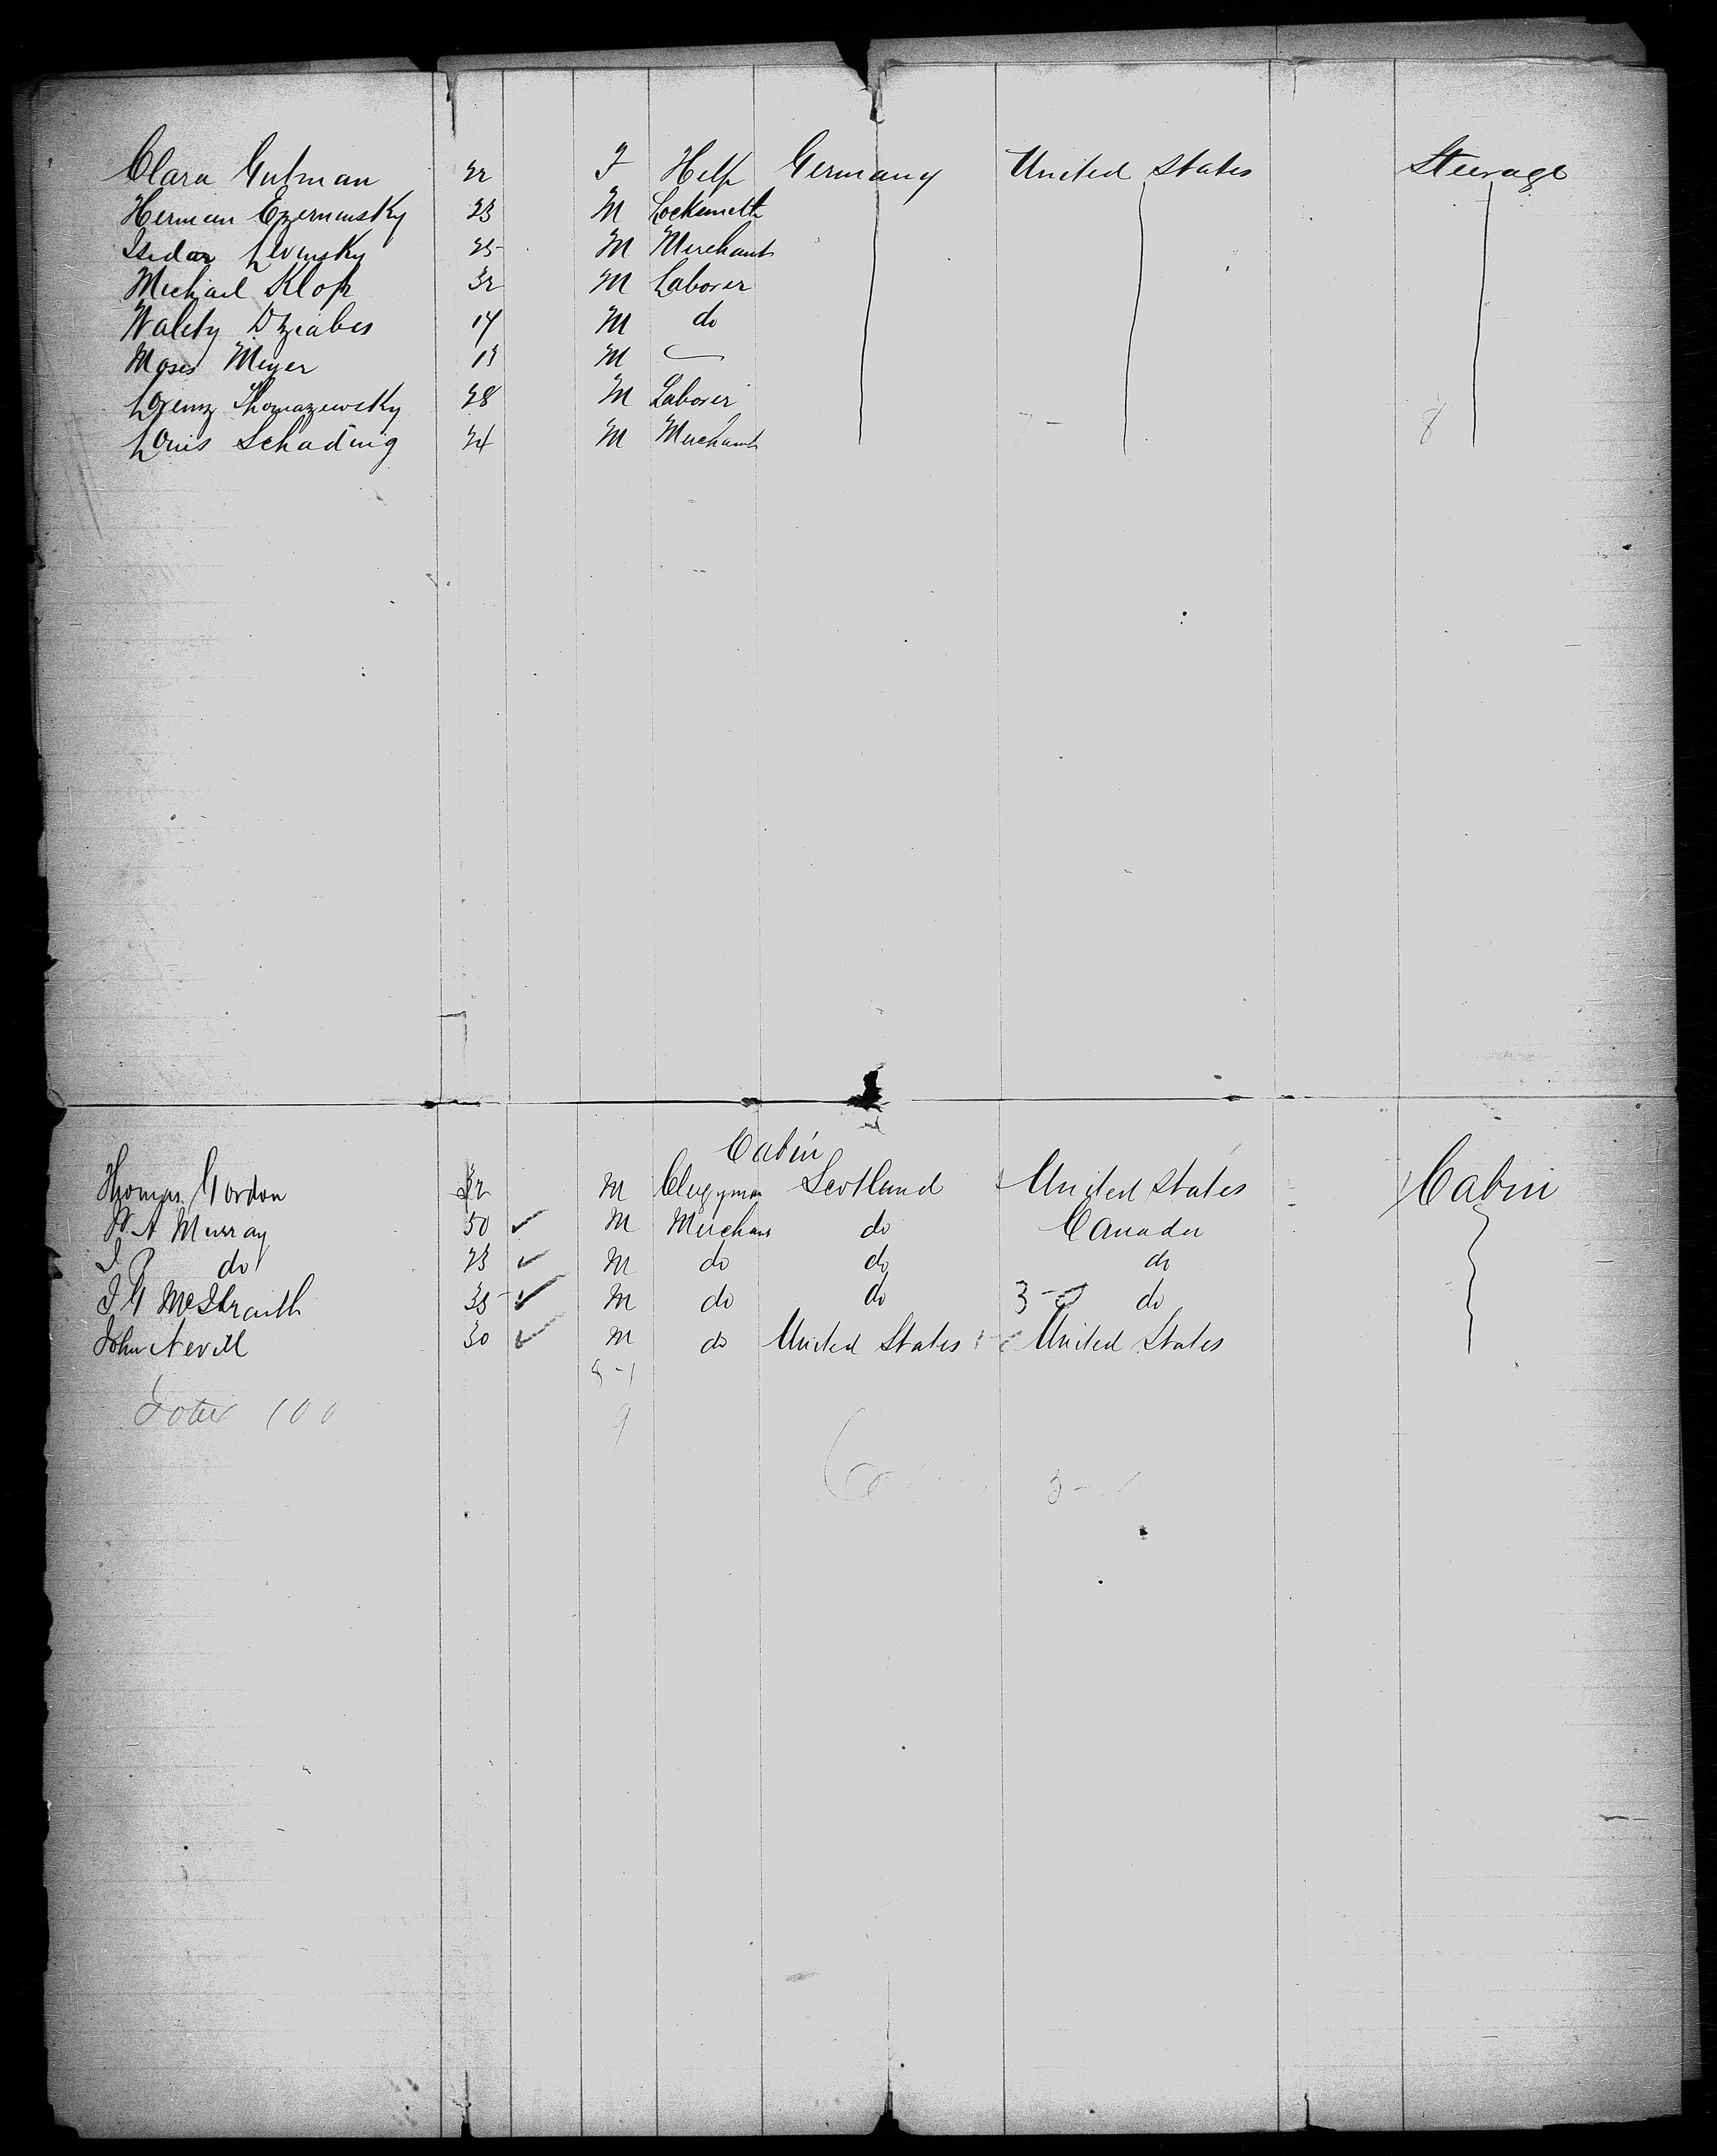 Clara Gutman 22 F Help Germany United States Steerage
Herman Ezernensky 23 M Locksmith
Isidor Levinsky 25 M Merchant
Michael Klop 32 M Laborer
Walety Dziabes 17 M do
Moses Meyer 13 M —
Lorenz Thomazewsky 28 M Laborer
Louis Schading 24 M Merchant 8
Cabin
Thomas Gordon 32 M Clergyman Scotland United States Cabin
P. A Murray 50 ✓ M Merchant do Canada
J P do 23 ✓ M do do do
J G 35 ✓ M do do 3 - do
John Nevill 30 ✓ M do United States United States
8-1
Total 100 9
3 -